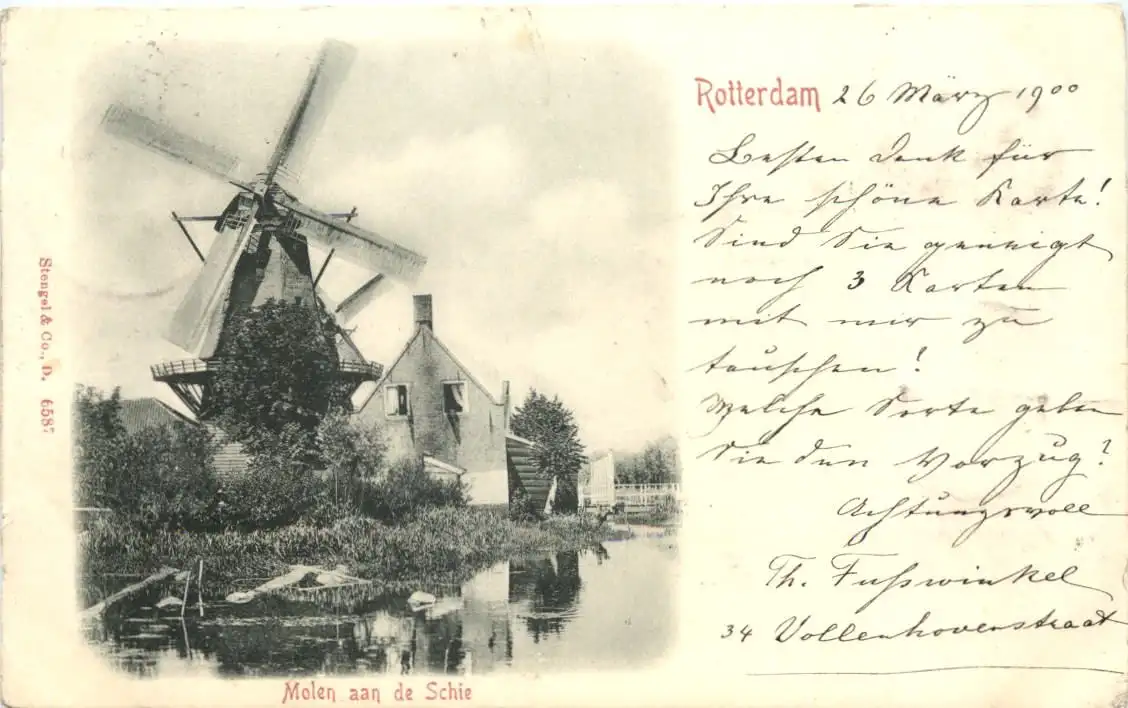 Rotterdam 26 März 1900
Besten Dank für
Ihre schöne Karte!
Sind Sie geneigt
noch 3 Karten
mit mir zu
tauschen!
Welche Sorte geben
Sie den Vorzug?
Achtungsvoll
Th. Fußwinkel
34 Vollenhovenstraat
Stengel & Co., D. 6587
Molen aan de Schie